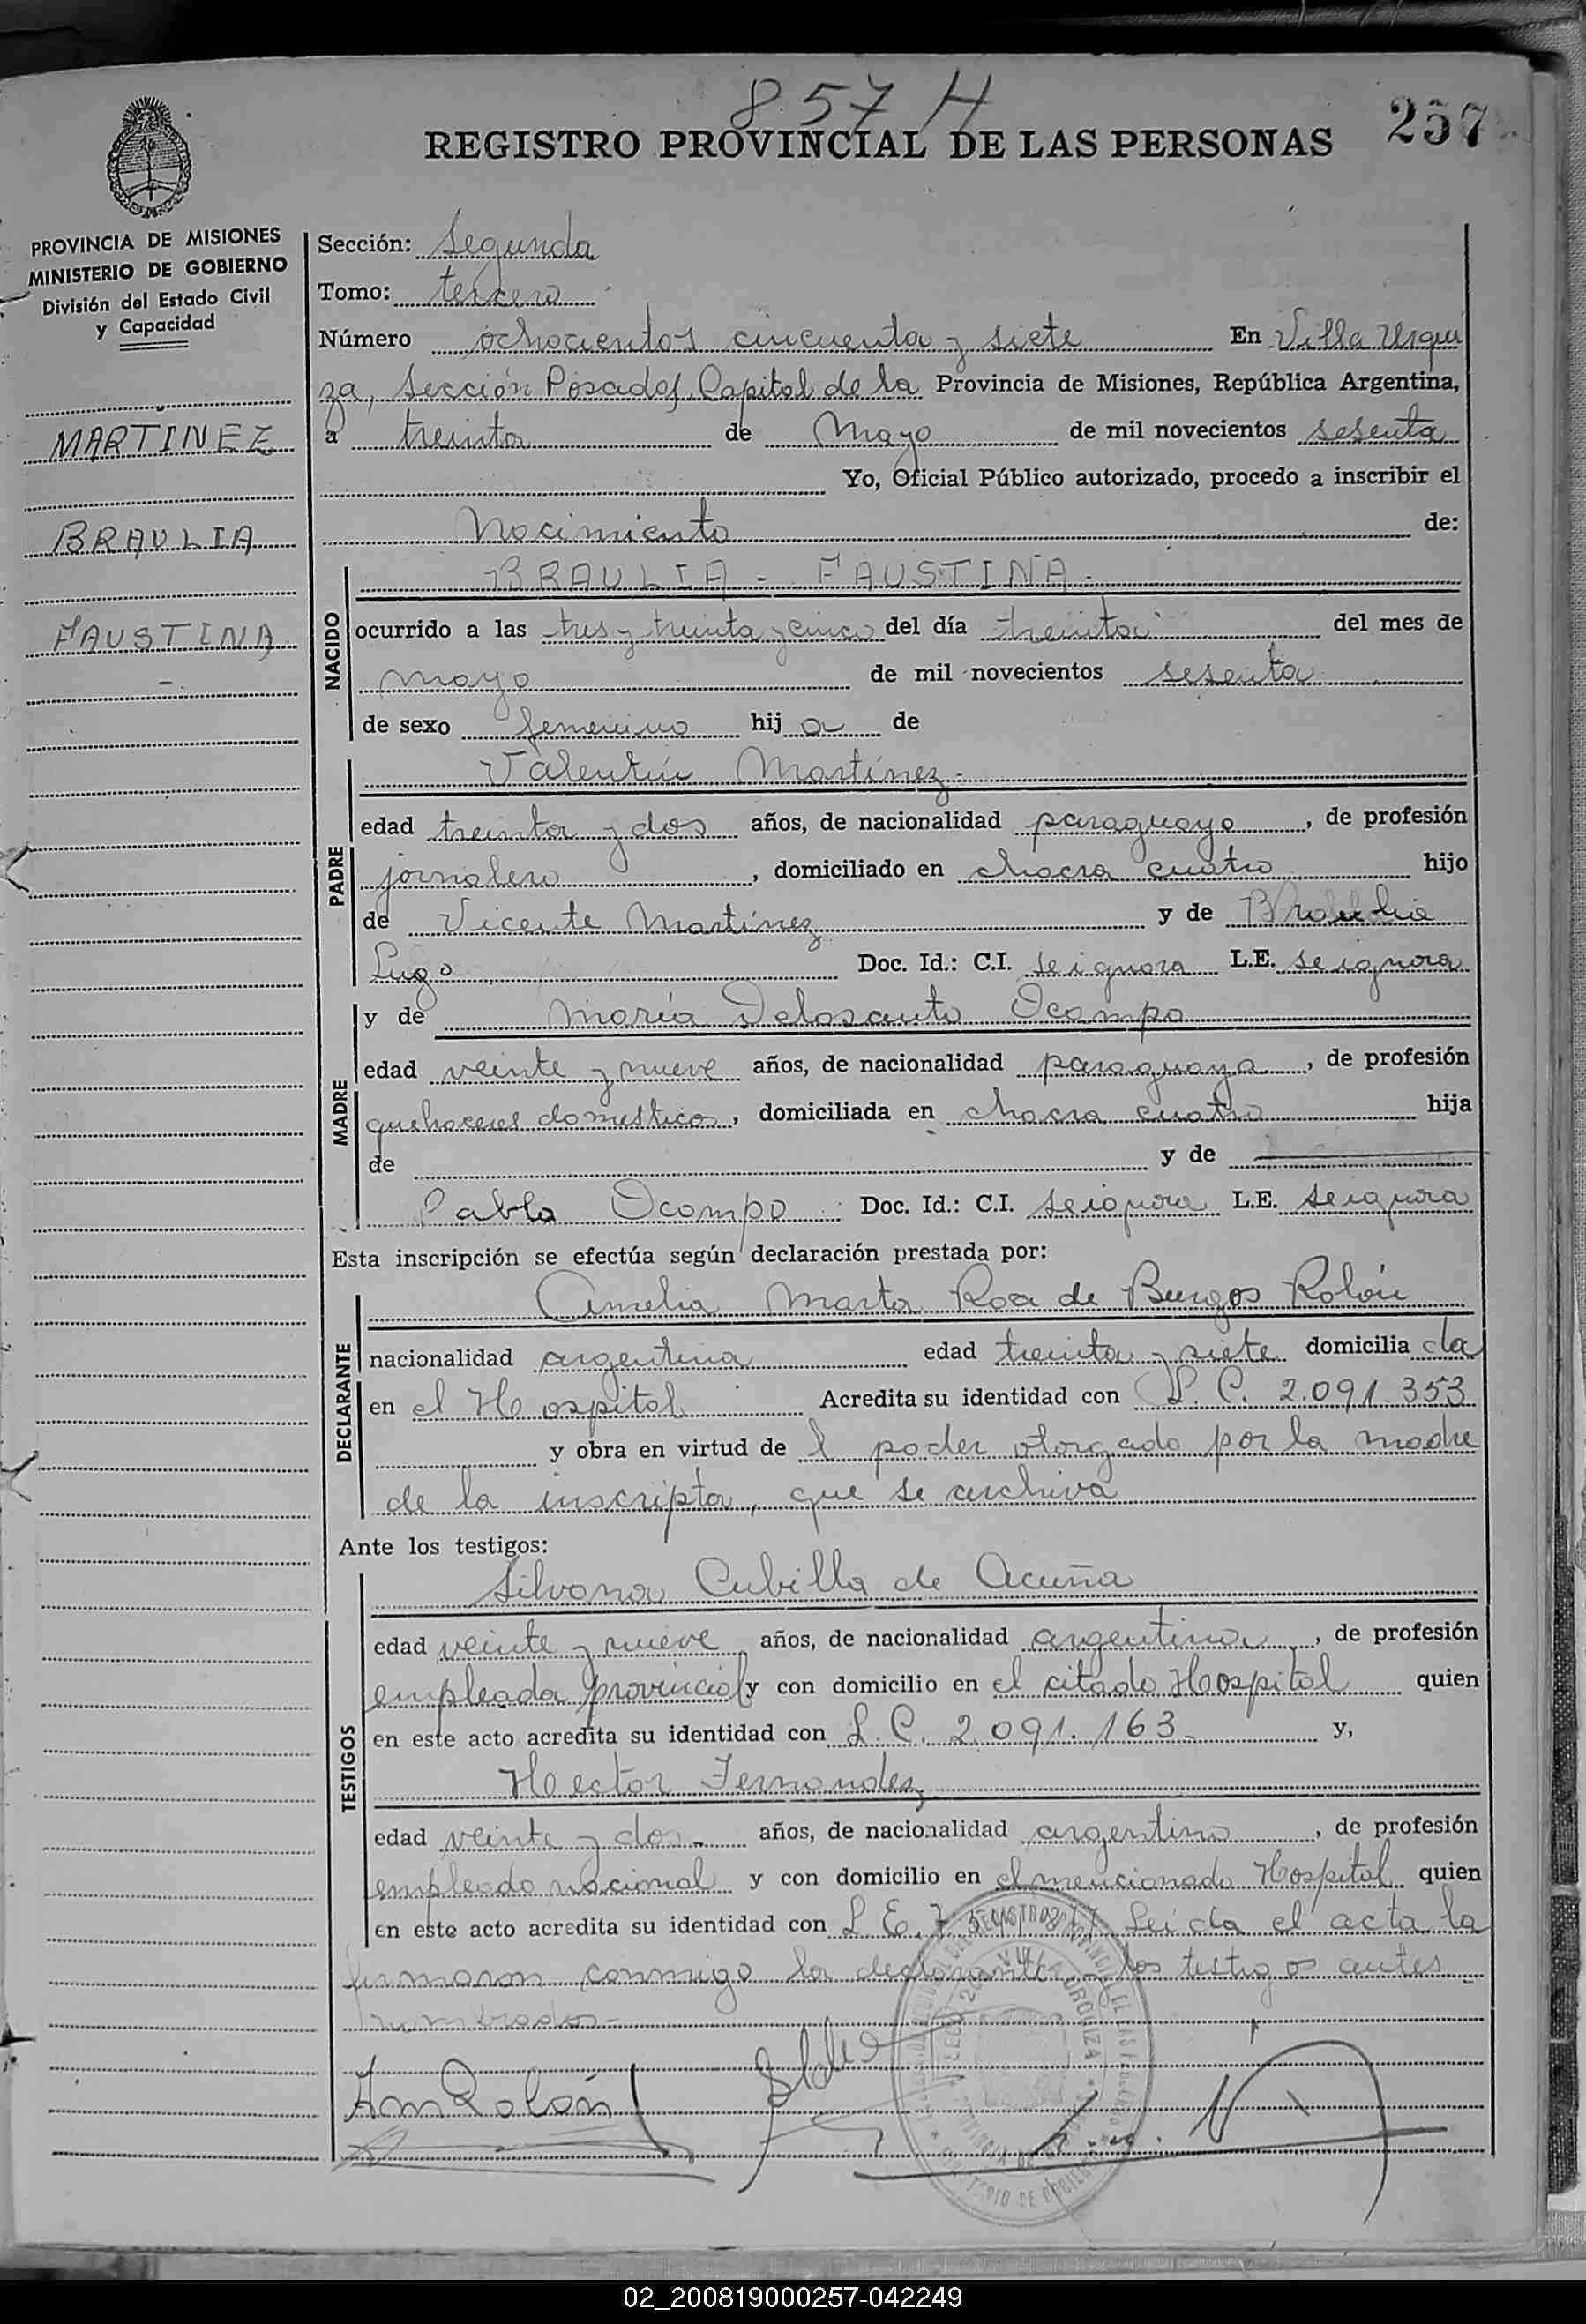 857 H
257
REGISTRO PROVINCIAL DE LAS PERSONAS
PROVINCIA DE MISIONES
MINISTERIO DE GOBIERNO
División del Estado Civil
y Capacidad
MARTINEZ
BRAULIA
FAUSTINA
Sección: Segunda
Tomo: tercero
Número ochocientos cincuenta y siete En Villa Urqui
za, Sección Posadas, Capital de la Provincia de Misiones, República Argentina,
a treinta de Mayo de mil novecientos sesenta
Yo, Oficial Público autorizado, procedo a inscribir el
Nacimiento de:
NACIDO
BRAULIA - FAUSTINA -
ocurrido a las tres y treinta y cinco del día treinta del mes de
mayo de mil novecientos sesenta
de sexo femenino hija de
PADRE
Valentín Martínez -
edad treinta y dos años, de nacionalidad paraguayo, de profesión
jornalero, domiciliado en chacra cuatro hijo
de Vicente Martínez y de Braulia
Lugo Doc. Id.: C.I. se ignora L.E. se ignora
MADRE
y de María Delosanto Ocampo
edad veinte y nueve años, de nacionalidad paraguaya, de profesión
quehaceres domesticos, domiciliada en chacra cuatro hija
de y de
Pabla Ocampo Doc. Id.: C.I. se ignora L.E. se ignora
Esta inscripción se efectúa según declaración prestada por:
DECLARANTE
Amelia Marta Roa de Burgos Rolón
nacionalidad argentina edad treinta y siete domiciliada
en el Hospital Acredita su identidad con L. C. 2.091.353
y obra en virtud del poder otorgado por la madre
de la inscripta, que se archiva
Ante los testigos:
TESTIGOS
Silvana Cubilla de Acuña
edad veinte y nueve años, de nacionalidad argentina, de profesión
empleada provincial y con domicilio en el citado Hospital quien
en este acto acredita su identidad con L. C. 2.091.163 - y,
Hector Fernandez
edad veinte y dos - años, de nacionalidad argentino, de profesión
empleado nacional y con domicilio en el mencionado Hospital quien
en este acto acredita su identidad con L. E. 7. Leida el acta la
firmaron conmigo la declarante y los testigos antes
nombrados -
Am Rolón
02_200819000257-042249